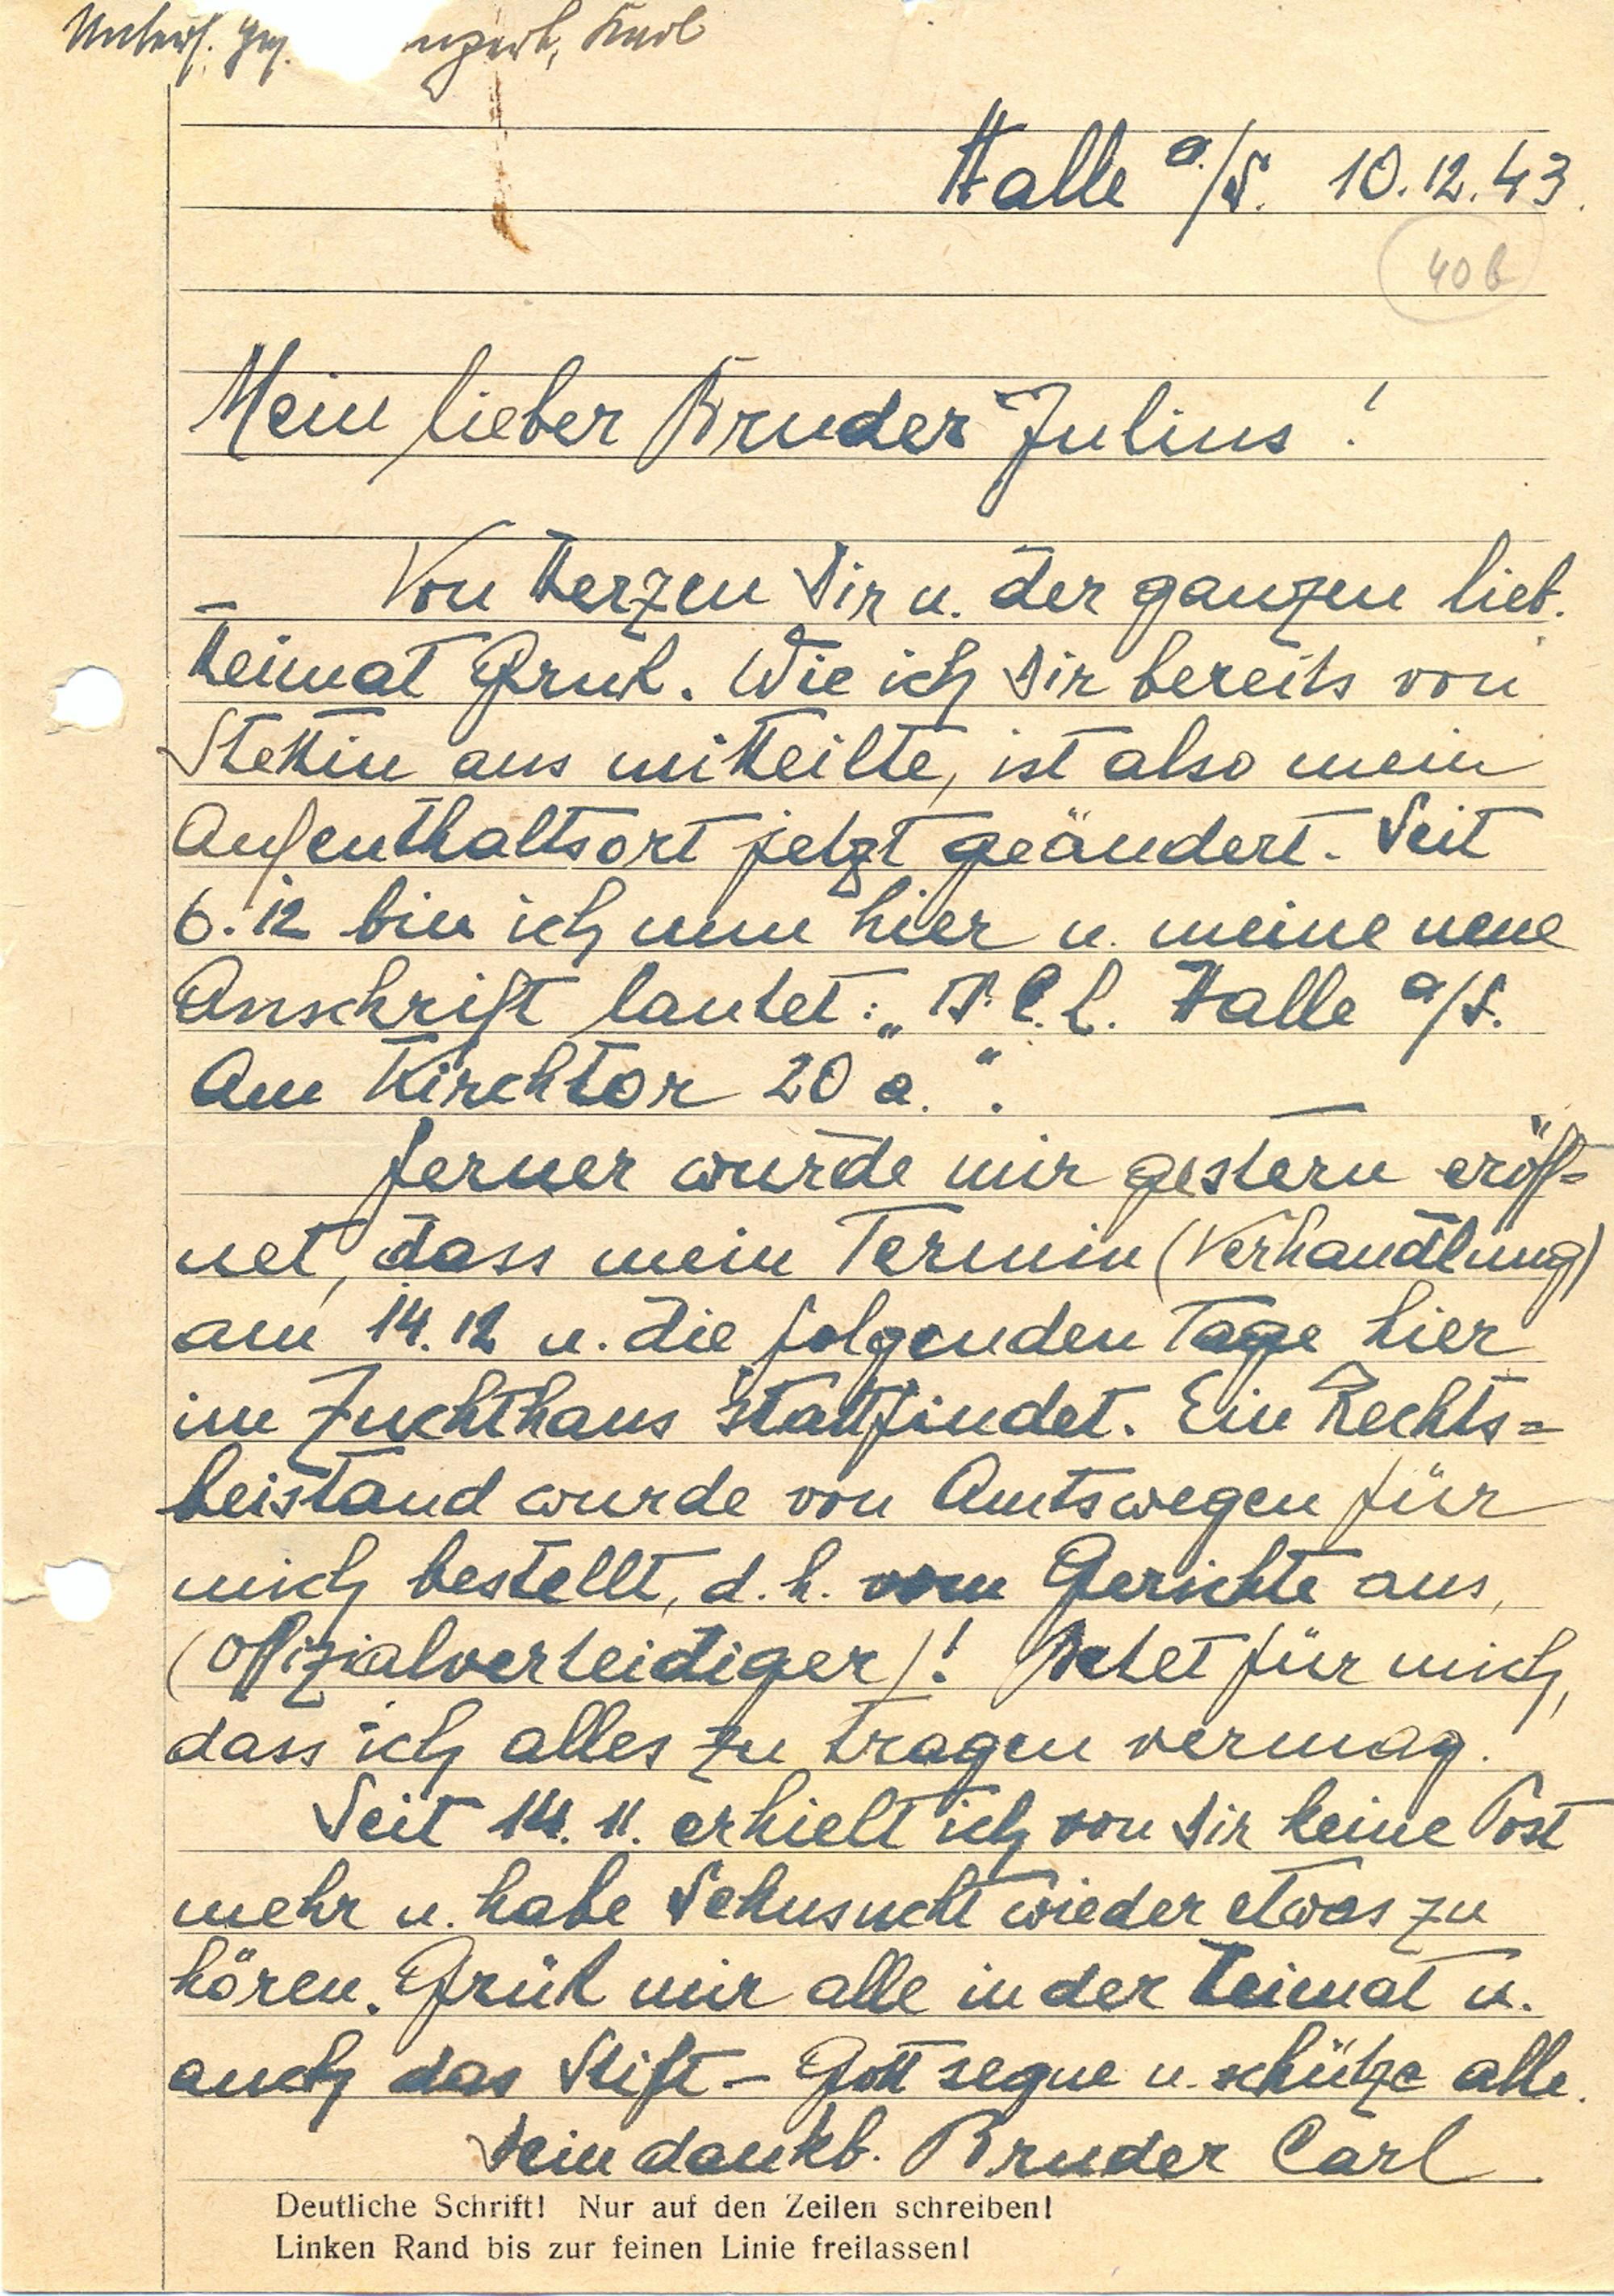 Untersf. Gef. Karl
Halle a./S. 10.12.43.
40 b
Mein lieber Bruder Julius!
Von Herzen Dir u. der ganzen lieb.
Heimat Gruß. Wie ich Dir bereits von
Stettin aus mitteilte, ist also mein
Aufenthaltsort jetzt geändert. Seit
6.12 bin ich nun hier u. meine neue
Anschrift lautet: „ Halle a/S.
Am Kirchtor 20 a.“.
Ferner wurde mir gestern eröff=
net, dass mein Termin (Verhandlung)
am 14.12 u. die folgenden Tage hier
im Zuchthaus stattfindet. Ein Rechts=
beistand wurde von Amtswegen für
mich bestellt, d.h. vom Gerichte aus,
(Offizialverteidiger)! Betet für mich,
dass ich alles zu tragen vermag.
Seit 14.11. erhielt ich von Dir keine Post
mehr u. habe Sehnsucht wieder etwas zu
hören. Grüß mir alle in der Heimat u.
auch das Stift – Gott segne u. schütze alle.
Dein dankb. Bruder Carl
Deutliche Schrift! Nur auf den Zeilen schreiben!
Linken Rand bis zur feinen Linie freilassen!